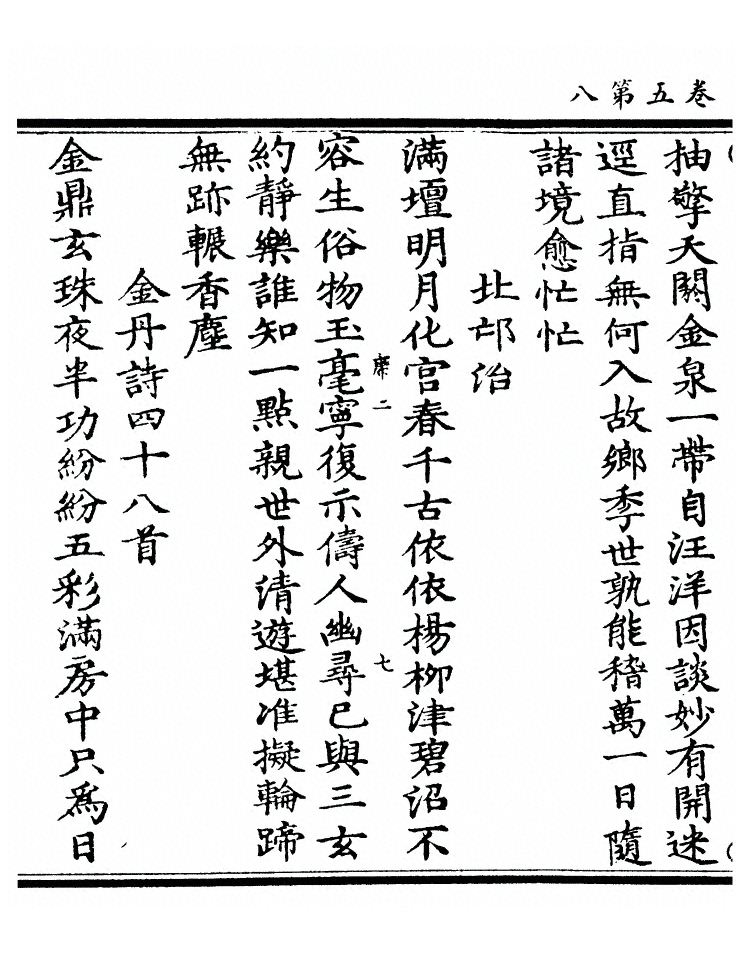 卷五第八
抽擎天關金泉一帶自汪洋因談妙有開迷
逕直指無何入故鄉季世孰能稽萬一日隨
諸境愈忙忙
北邙治
滿壇明月化宮春千古依依楊柳津碧沼不
二 七
容生俗物玉毫寧復示儔人幽尋已與三玄
約靜樂誰知一點親世外清遊堪准擬輪蹄
無跡輾香塵
金丹詩四十八首
金鼎玄珠夜半功紛紛五彩滿房中只爲日